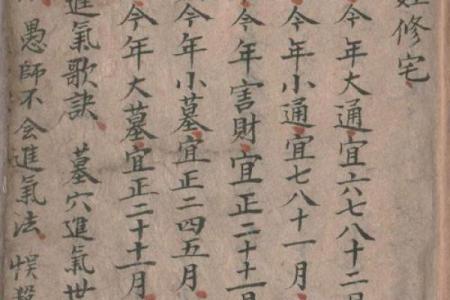 姓修宅
今年大通宜六七八十二月
今年小通宜七八十一月
今年害財宜正二十十一月
今年小墓宜正二四五月
今年大墓宜正二十十一月
進氣歌訣 墓穴進氣世
愚師不会進氣法 悞